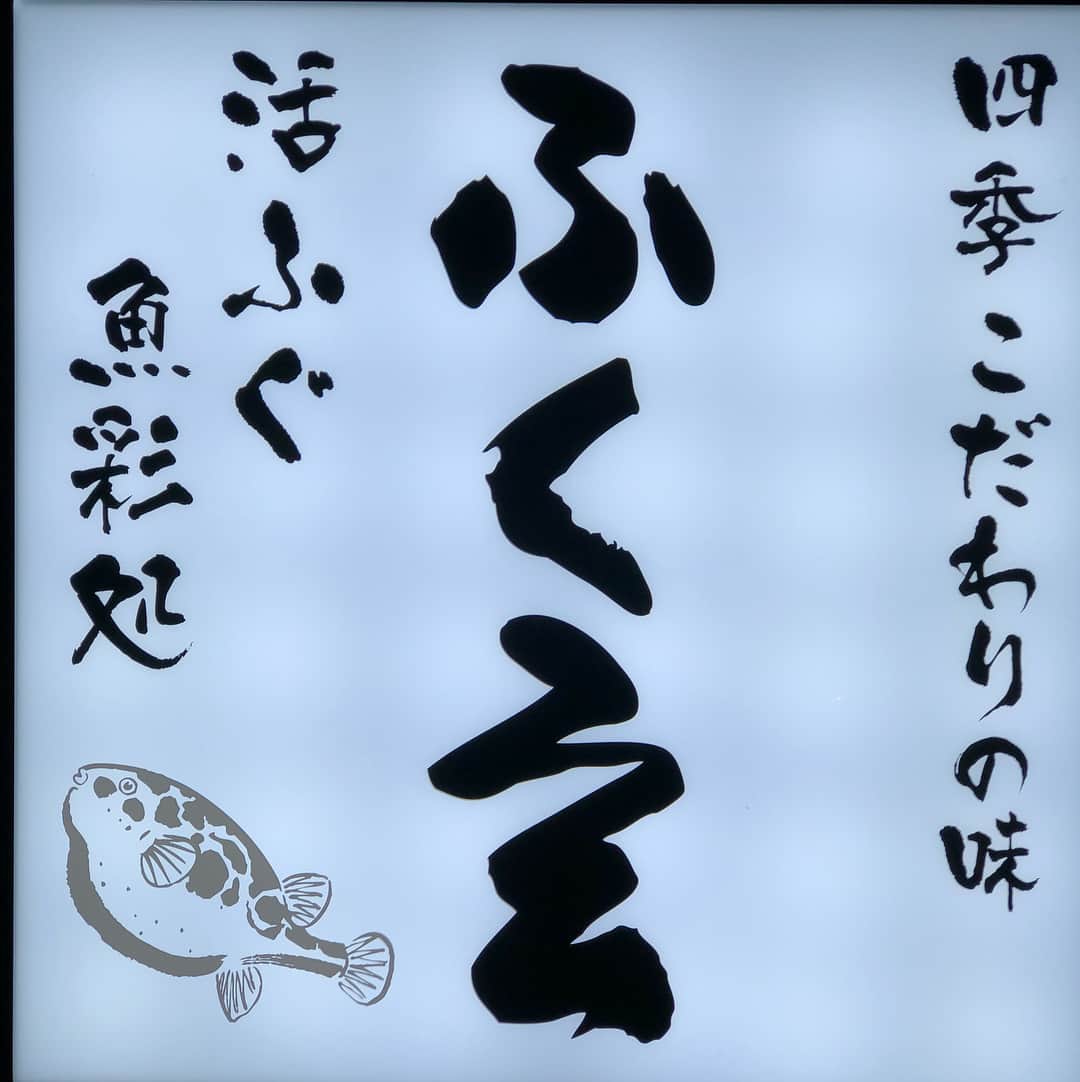 四季こだわりの味
ふく
活ふぐ
魚彩処